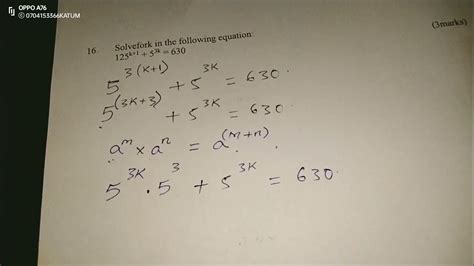 OPPO A76
© 0704153366KATUM
(3marks)
16. Solvefork in the following equation:
125^{k+1} + 5^{3k} = 630
5^{3(K+1)} + 5^{3K} = 630.
5^{(3K+3)} + 5^{3K} = 630
a^m × a^n = a^{(m+n)}.
5^{3K} · 5^3 + 5^{3K} = 630.